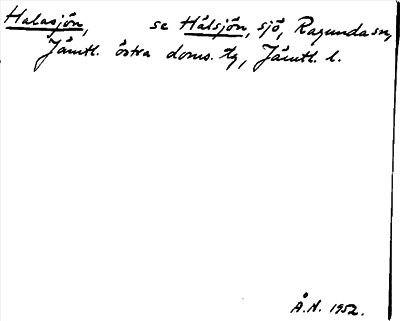 Halasjön, se Hålsjön, sjö, Ragunda sn,
Jämtl. östra doms. tg, Jämtl. l.
Å.N. 1952.